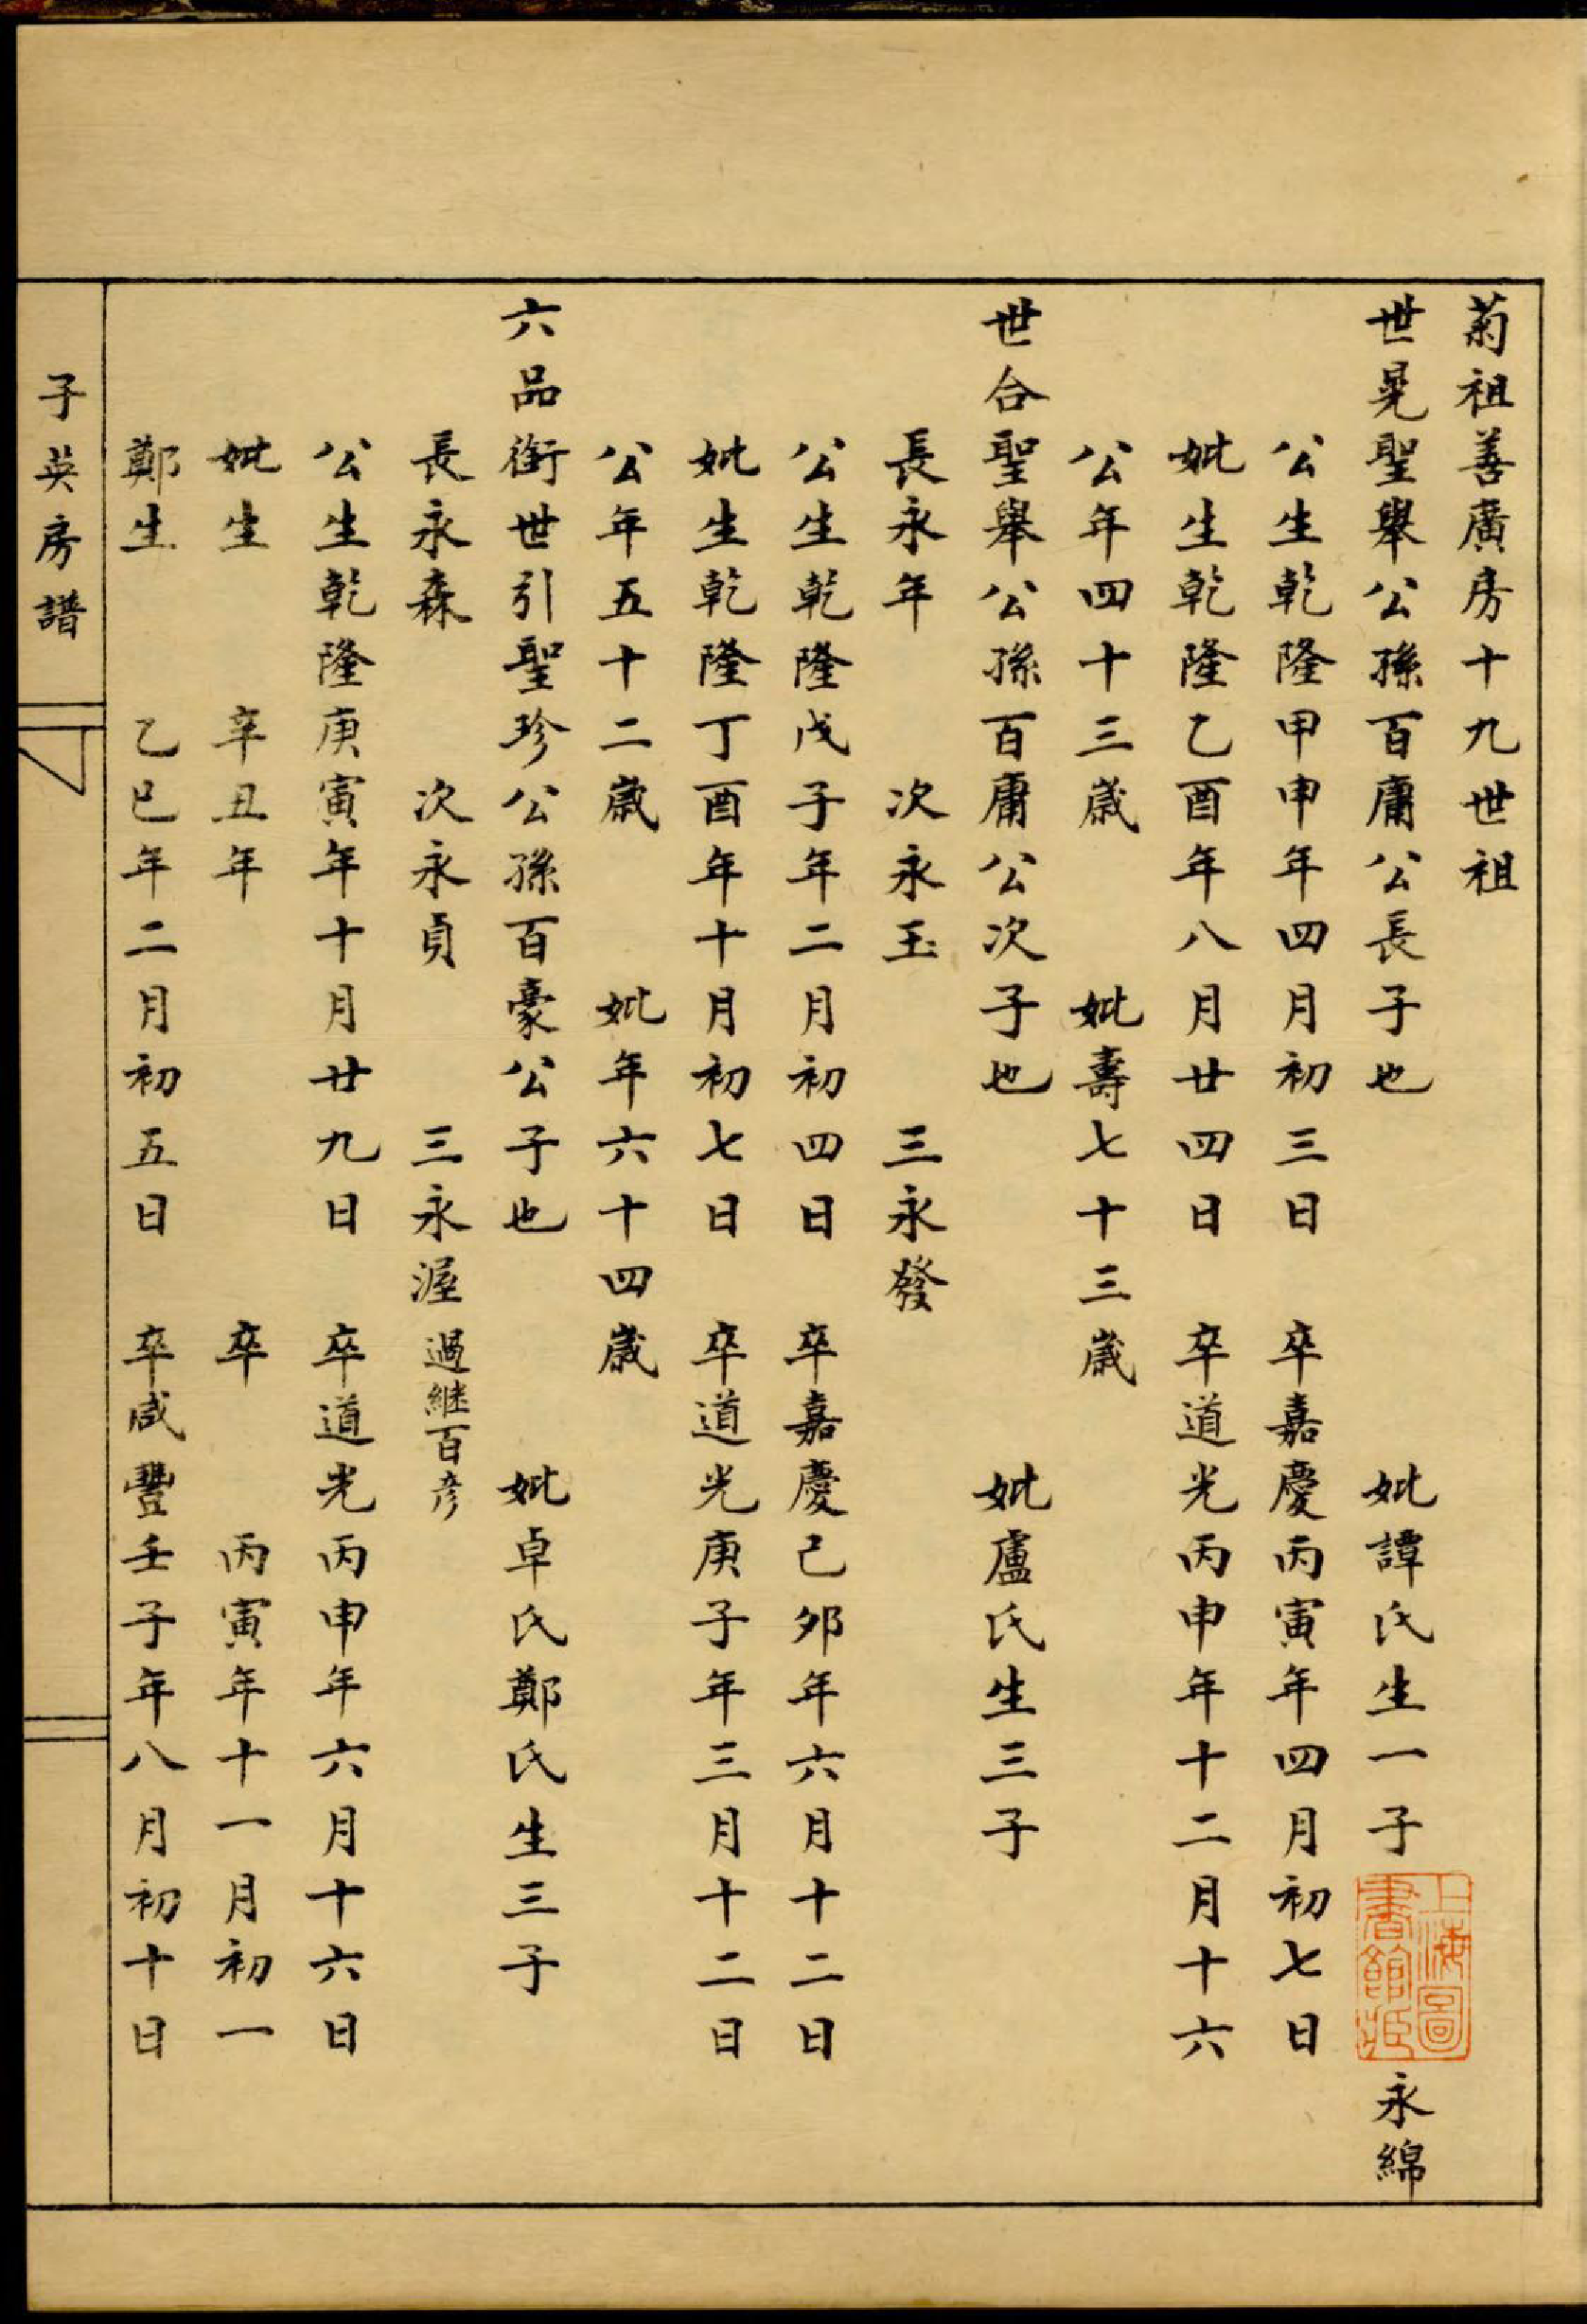 菊祖善廣房十九世祖
世晃聖舉公孫百庸公長子也 妣譚氏生一子 永綿
公生乾隆甲申年四月初三日 卒嘉慶丙寅年四月初七日
妣生乾隆乙酉年八月廿四日 卒道光丙申年十二月十六
公年四十三歲 妣壽七十三歲
世合聖舉公孫百庸公次子也 妣盧氏生三子
長永年 次永玉 三永發
公生乾隆戊子年二月初四日 卒嘉慶己夘年六月十二日
妣生乾隆丁酉年十月初七日 卒道光庚子年三月十二日
公年五十二歲 妣年六十四歲
六品銜世引聖珍公孫百豪公子也 妣卓氏鄭氏生三子
長永森 次永貞 三永渥過継百彦
公生乾隆庚寅年十月廿九日 卒道光丙申年六月十六日
妣生 辛丑年 卒 丙寅年十一月初一
鄭生 乙巳年二月初五日 卒咸豐壬子年八月初十日
子英房譜
上海圖
書館藏